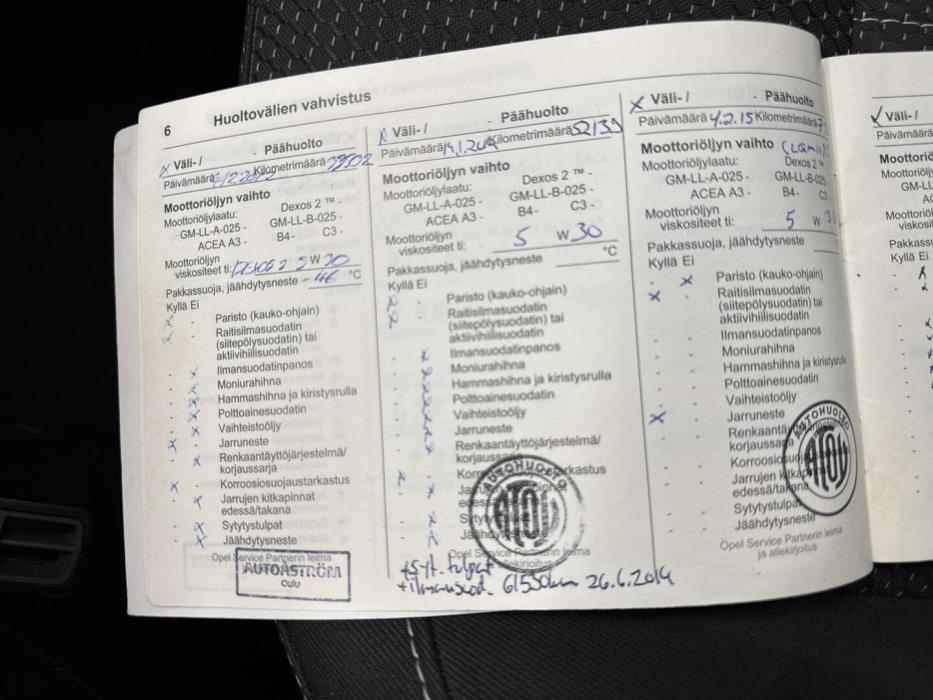 6 Huoltovälien vahvistus
x Väli- / - Päähuolto
Päivämäärä Kilometrimäärä
Moottoriöljyn vaihto
Moottoriöljylaatu: Dexos 2 ™ -
GM-LL-A-025 - GM-LL-B-025 -
ACEA A3 - B4- C3 -
Moottoriöljyn
viskositeet ti: DEXOS 2 5 W 30
Pakkassuoja, jäähdytysneste -46 °C
Kyllä Ei
x - Paristo (kauko-ohjain)
x - Raitisilmasuodatin
(siitepölysuodatin) tai
aktiivihiilisuodatin
- x Ilmansuodatinpanos
- x Moniurahihna
- x Hammashihna ja kiristysrulla
- x Polttoainesuodatin
- x Vaihteistoöljy
x - Jarruneste
- x Renkaantäyttöjärjestelmä/
korjaussarja
x - Korroosiosuojaustarkastus
- x Jarrujen kitkapinnat
edessä/takana
- x Sytytystulpat
- x Jäähdytysneste
Opel Service Partnerin leima
AUTOÅSTRÖM
Oulu
x Väli- / - Päähuolto
Päivämäärä Kilometrimäärä 52139
Moottoriöljyn vaihto
Moottoriöljylaatu: Dexos 2 ™ -
GM-LL-A-025 - GM-LL-B-025 -
ACEA A3 - B4- C3 -
Moottoriöljyn
viskositeet ti: 5 W 30
Pakkassuoja, jäähdytysneste °C
Kyllä Ei
x - Paristo (kauko-ohjain)
x - Raitisilmasuodatin
(siitepölysuodatin) tai
aktiivihiilisuodatin
- x Ilmansuodatinpanos
- x Moniurahihna
- x Hammashihna ja kiristysrulla
- x Polttoainesuodatin
- x Vaihteistoöljy
- x Jarruneste
- x Renkaantäyttöjärjestelmä/
korjaussarja
x -
Opel Service Partnerin leima
AUTOHUOLTO
ATOY
+Syt. tulpat
+ilmansuod. 61550km 26.6.2014
x Väli- / - Päähuolto
Päivämäärä 4.2.15 Kilometrimäärä
Moottoriöljyn vaihto
Moottoriöljylaatu: Dexos 2 ™ -
GM-LL-A-025 - GM-LL-B-025
ACEA A3 - B4-
Moottoriöljyn
viskositeet ti: 5 W
Pakkassuoja, jäähdytysneste
Kyllä Ei
- x Paristo (kauko-ohjain)
x - Raitisilmasuodatin
(siitepölysuodatin) tai
aktiivihiilisuodatin
- - Ilmansuodatinpanos
- - Moniurahihna
- - Hammashihna ja kiristysrulla
- - Polttoainesuodatin
- - Vaihteistoöljy
x - Jarruneste
korjaussarja
edessä/takana
Sytytystulpat
Jäähdytysneste
Opel Service Partnerin leima
ja allekirjoitus
AUTOHUOLTO
ATOY
✓ Väli- /
Päivämäärä
GM-LL
Kyllä Ei